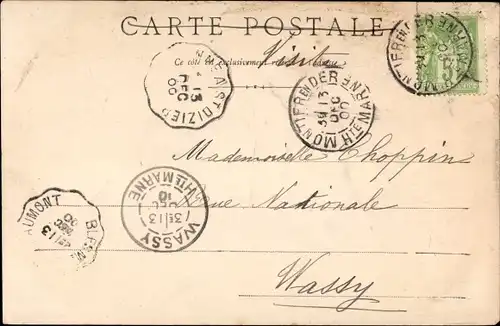 CARTE POSTALE
Ce côté est exclusivement
Visite
MONTIERENDER
3E 13
DEC
00
HTE MARNE
ST DIZIER
13
DEC
00
Mademoiselle Choppin
Rue Nationale
Wassy
WASSY
3E 13
DEC
HTE MARNE
BLESME
AUMONT
13
DEC
00
5